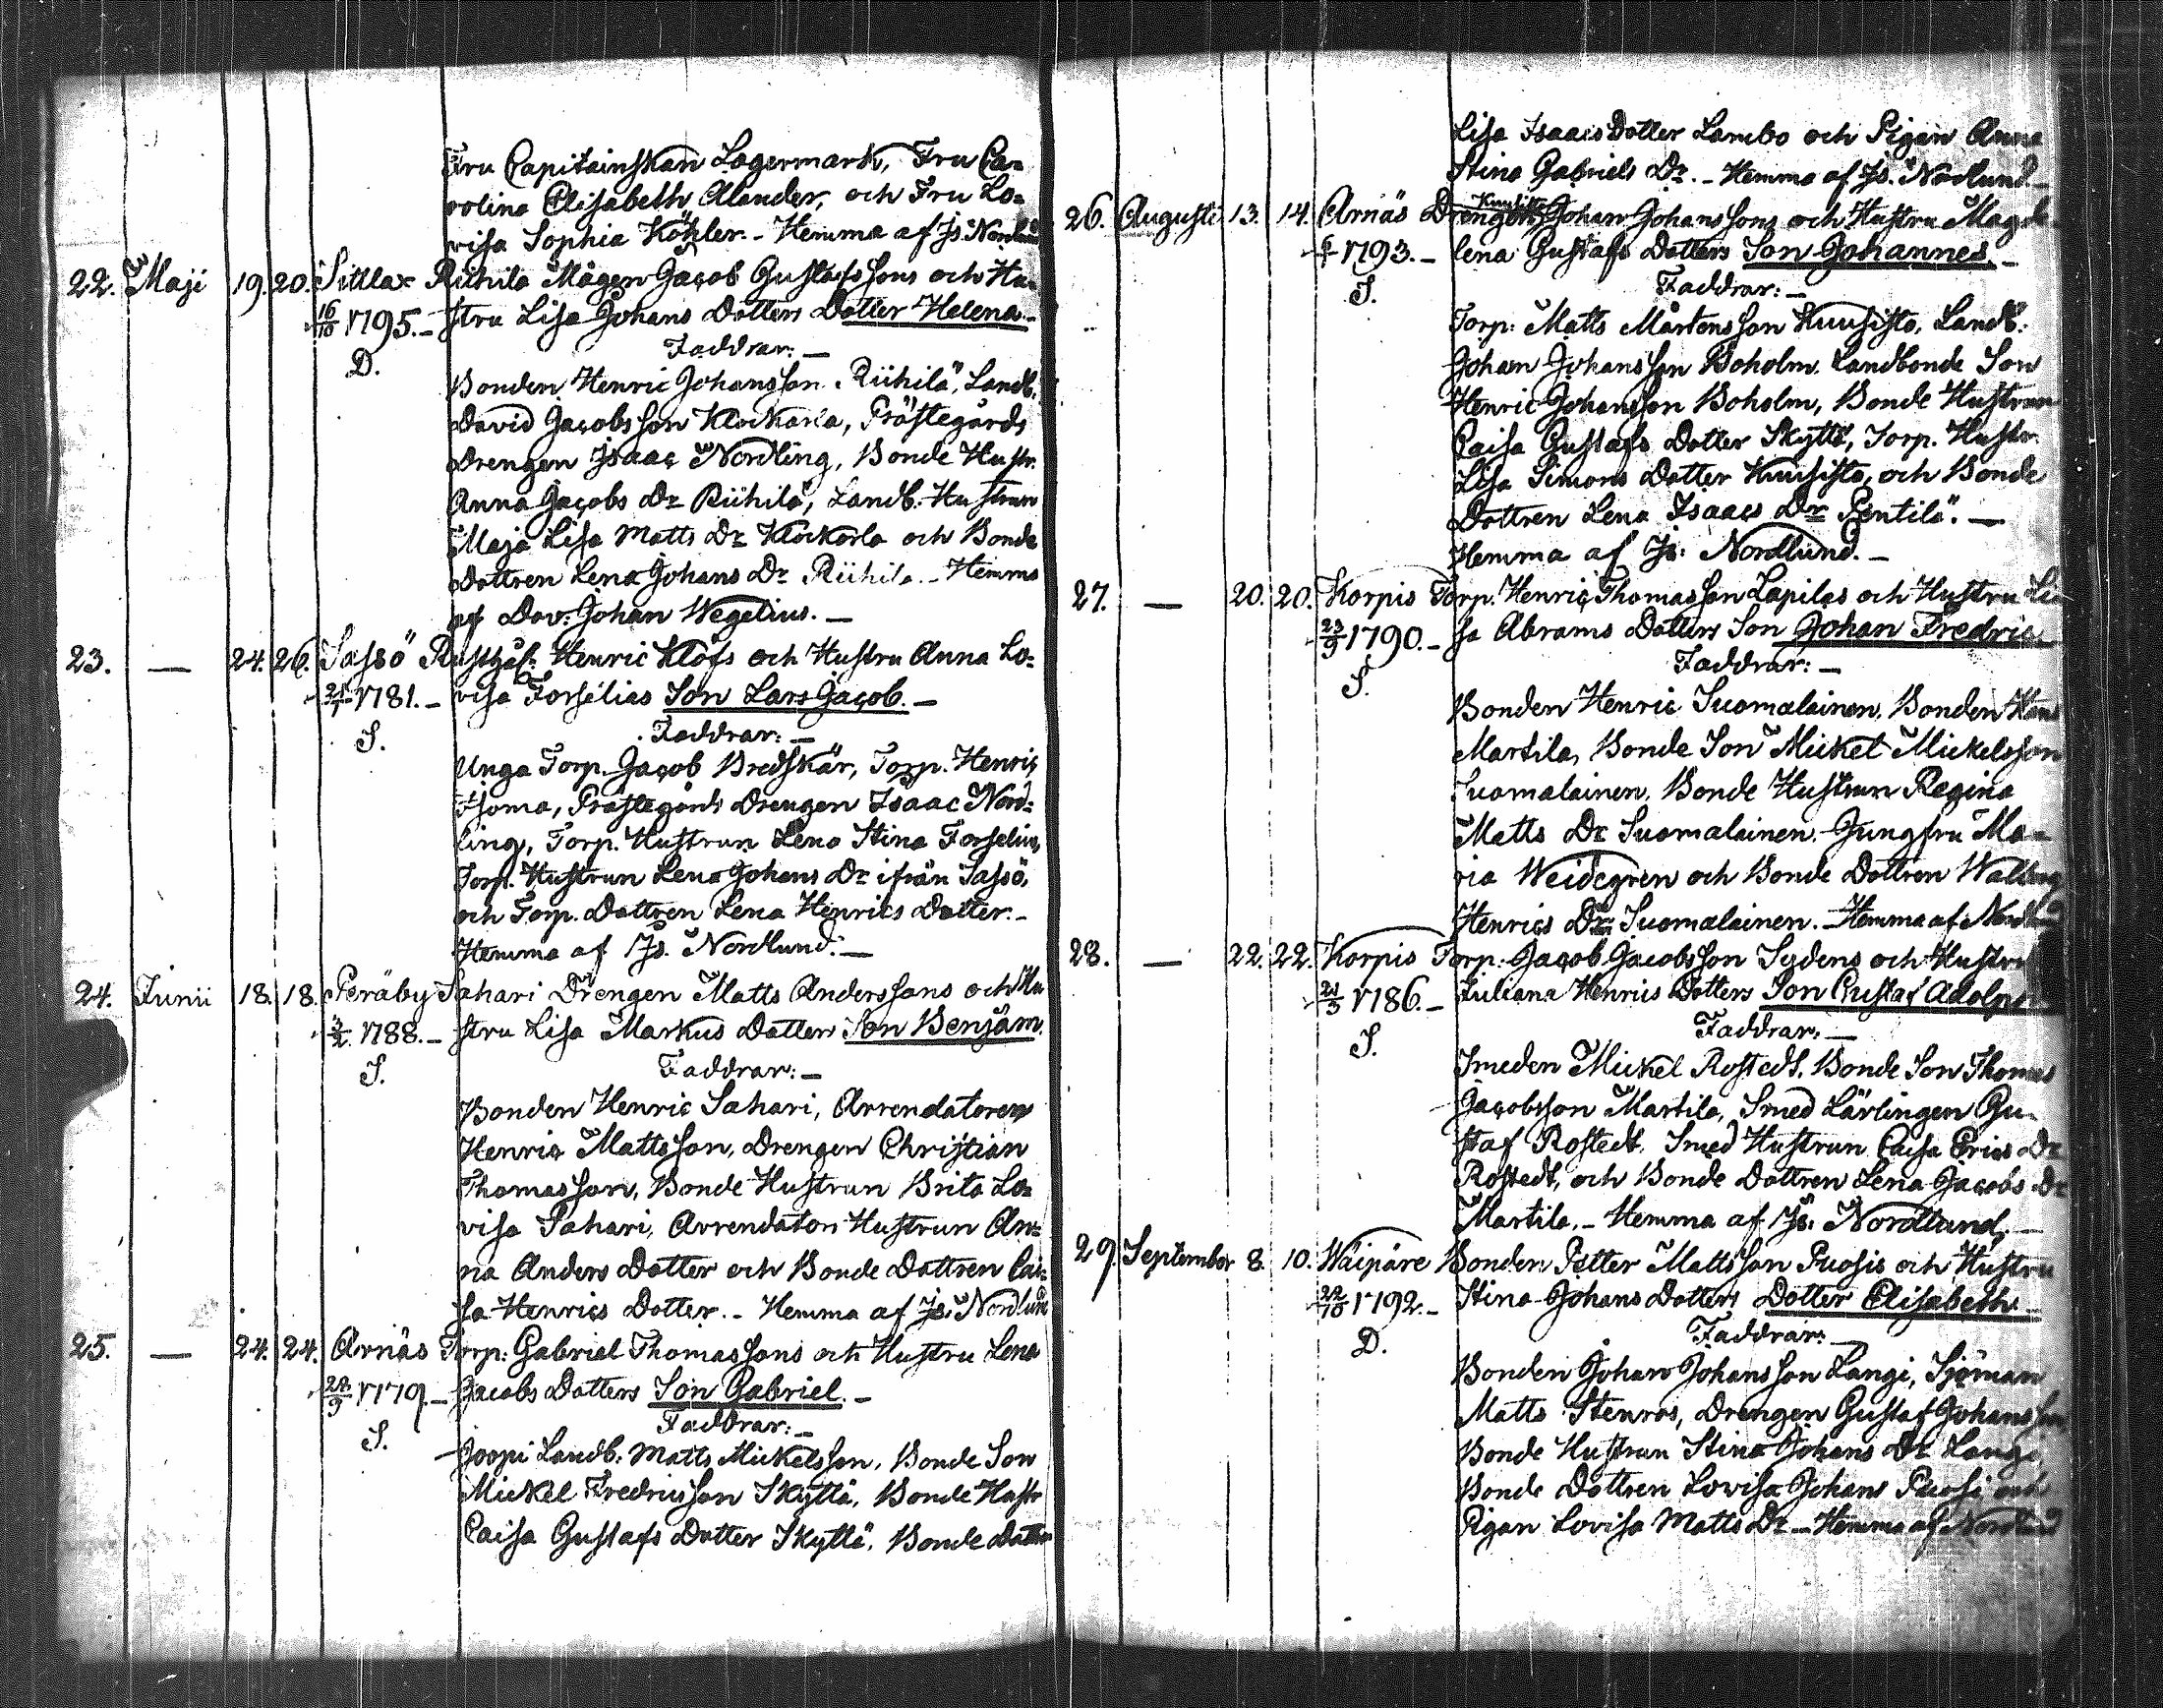 Fru Capitainskan Lagermark, Fru Ca=
rolina Elisabeth Alander, och Fru Lo=
visa Sophia Köhler. - Hemma af Js. Nordlund
22. Maji 19. 20. Sillax Riihila Mågen Jacob Gustafssons och Hu=
16/10 1795. - stru Lisa Johans Dotters Dotter Helena. -
D. Faddrar: -
Bonden Henric Johansson Riihilä, Landb.
David Jacobsson Klockarla, Prästegårds
Drengen Isaac Nordling, Bonde Hustr.
Anna Jacobs Dr Riihilä, Landb. Hustrun
Maja Lisa Matts Dr Klockarla och Bonde
Dottren Lena Johans Dr Riihila. - Hemma
af Dov: Johan Wegelius. -
23. — 24. 26. Sassö Rusthål: Henric Klöfs och Hustru Anna Lo=
1781. - visa Forselias Son Lars Jacob. -
S. Faddrar: -
Unga Torp. Jacob Bredskär, Torp. Henric
Prästegårds Drengen Isaac Nord=
ling, Torp. Hustrun Lena Stina Forselius,
Torp. Hustrun Lena Johans Dr ifrån Sassö,
och Torp. Dottren Lena Henrics Dotter. -
Hemma af Js. Nordlund. -
24. Junii 18. 18. Peräby Sahari Drengen Matts Anderssons och Hu
1788. - stru Lisa Markus Dotters Son Benjam.
S. Faddrar: -
Bonden Henric Sahari, Arrendatoren
Henric Mattsson, Drengen Christian
Thomasson, Bonde Hustrun Brita Lo=
visa Sahari, Arrendator Hustrun An=
na Anders Dotter och Bonde Dottren Cai=
sa Henrics Dotter. - Hemma af Js. Nordlund
25. — 24. 24. Arnäs Torp: Gabriel Thomassons och Hustru Lena
1779. - Jacobs Dotters Son Gabriel. -
S. Faddrar: -
Joopi Landb. Matts Mickelsson, Bonde Son
Mickel Fredricsson Skyttä, Bonde Hustr
Caisa Gustafs Dotter Skyttä, Bonde Dottren
Lisa Isaacs Dotter Lambo och Pigan Anna
Stina Gabriels Dr. - Hemma af Js. Nordlund -
Kuusisto
26. Augusti 13. 14. Arnäs Drengen Johan Johanssons och Hustru Magda
1793. - lena Gustafs Dotters Son Johannes. -
S. Faddrar: -
Torp: Matts Mårtensson Kuusisto, Landb.
Johan Johansson Boholm, Landbonde Son
Henric Johansson Boholm, Bonde Hustrun
Caisa Gustafs Dotter Skyttä, Torp. Hustr.
Lisa Simons Dotter Kuusisto, och Bonde
Dottren Lena Isaacs Dr Pentilä. -
Hemma af Js: Nordlund. -
27. — 20. 20. Korpis Torp. Henric Thomasson Lapilas och Hustru Li
23/9 1790. - sa Abrams Dotters Son Johan Fredric
S. Faddrar: -
Bonden Henric Suomalainen, Bonden
Martila, Bonde Son Mickel Mickelsson
Suomalainen, Bonde Hustrun Regina
Matts Dr Suomalainen. Jungfru Ma=
ria Weidegren och Bonde Dottren Walborg
Henrics Dr Suomalainen. - Hemma af Nordlund
28. — 22. 22. Korpis Torp. Jacob Jacobsson Sydens och Hustru
21/3 1786. - Juliana Henrics Dotters Son Gustaf Adolph
S. Faddrar: -
Smeden Mickel Rostedt, Bonde Son Thomas
Jacobsson Martila, Smed Lärlingen Gu=
staf Rostedt, Smed Hustrun Caisa Erics Dr
Rostedt, och Bonde Dottren Lena Jacobs Dr
Martila. - Hemma af Js. Nordlund. -
29. September 8. 10. Wäipäre Bonden Petter Mattsson Puosis och Hustru
22/10 1792. - Stina Johans Dotters Dotter Elisabeth. -
D. Faddrar: -
Bonden Johan Johansson Langi, Sjöman
Matts Stenros, Drengen Gustaf Johansson,
Bonde Hustrun Stina Johans Dr Langi,
Bonde Dottren Lovisa Johans Puosi och
Pigan Lovisa Matts Dr. - Hemma af Nordlund